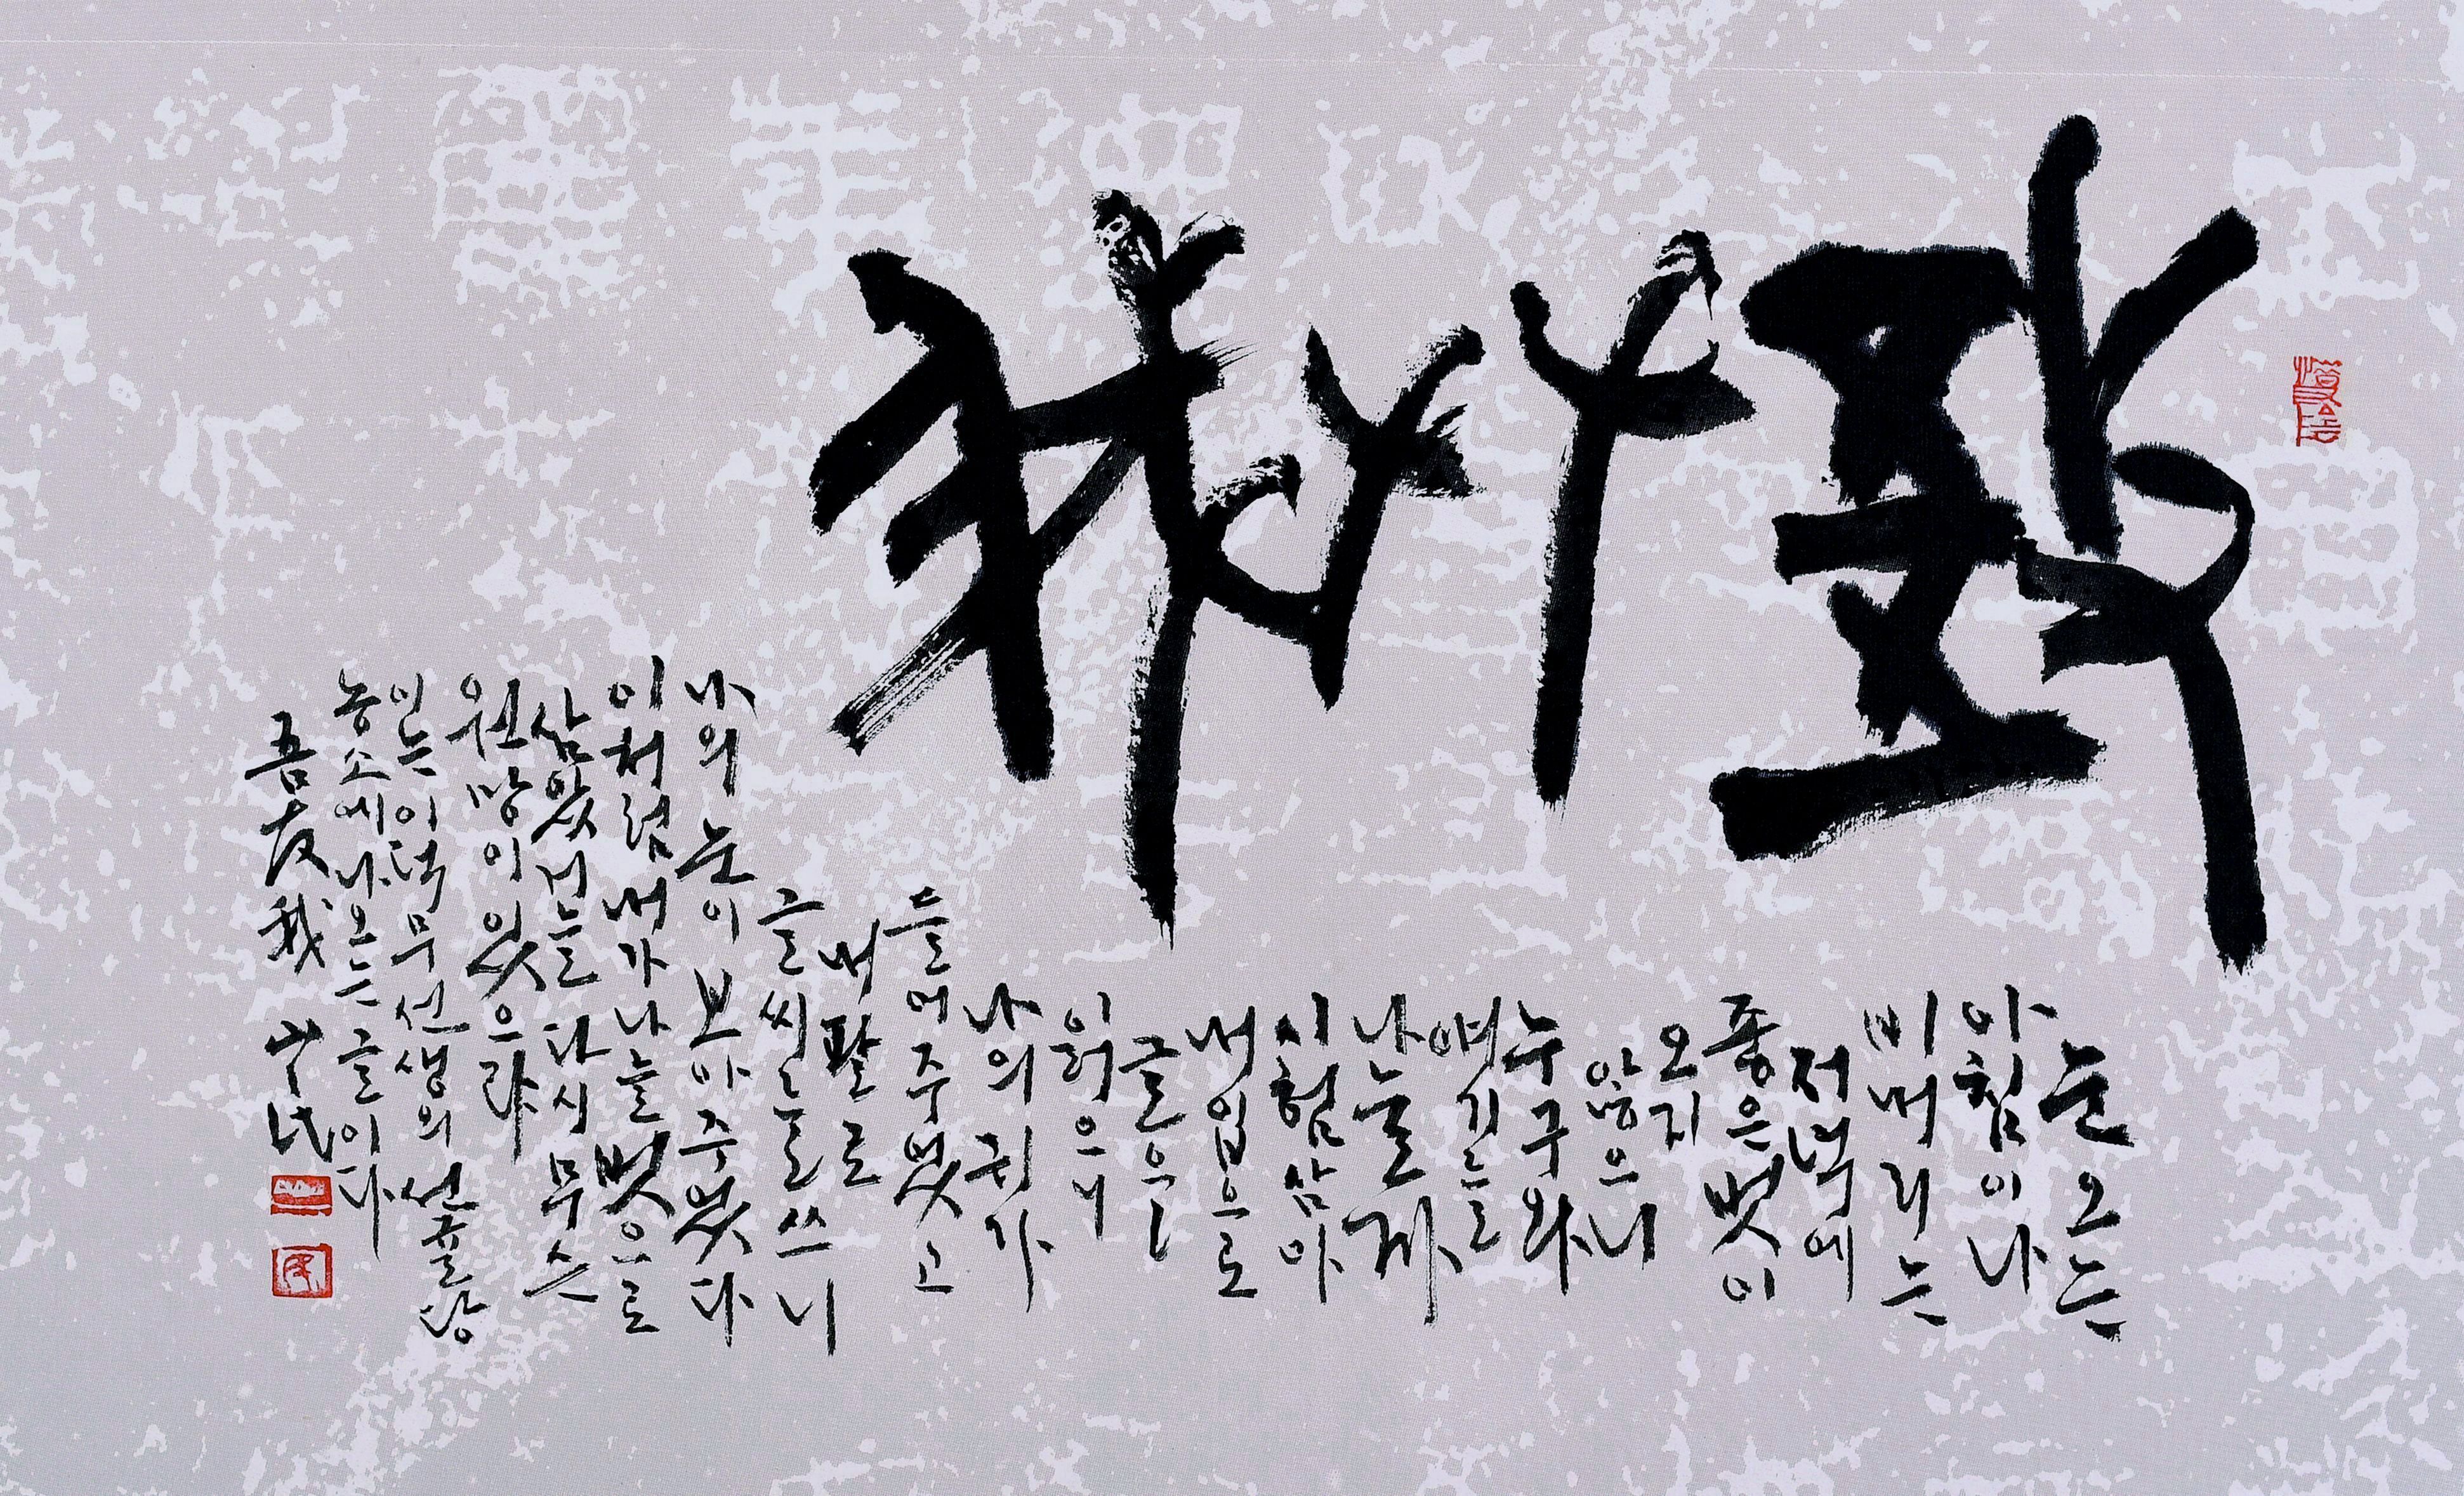 吾友我
눈 오는
아침이나
비 내리는
저녁에
좋은 벗이
오지
않으니
누구와
얘기를
나눌까
시험삼아
내 입으로
글을
읽으니
나의 귀가
들어주었고
내 팔로
글씨를 쓰니
나의 눈이 보아주었다
이처럼 내가 나를 벗으로
삼았거늘 다시 무슨
원망이 있으랴
이는 이덕무 선생의 선귤당
농소에 나오는 글이다
吾友我 山民